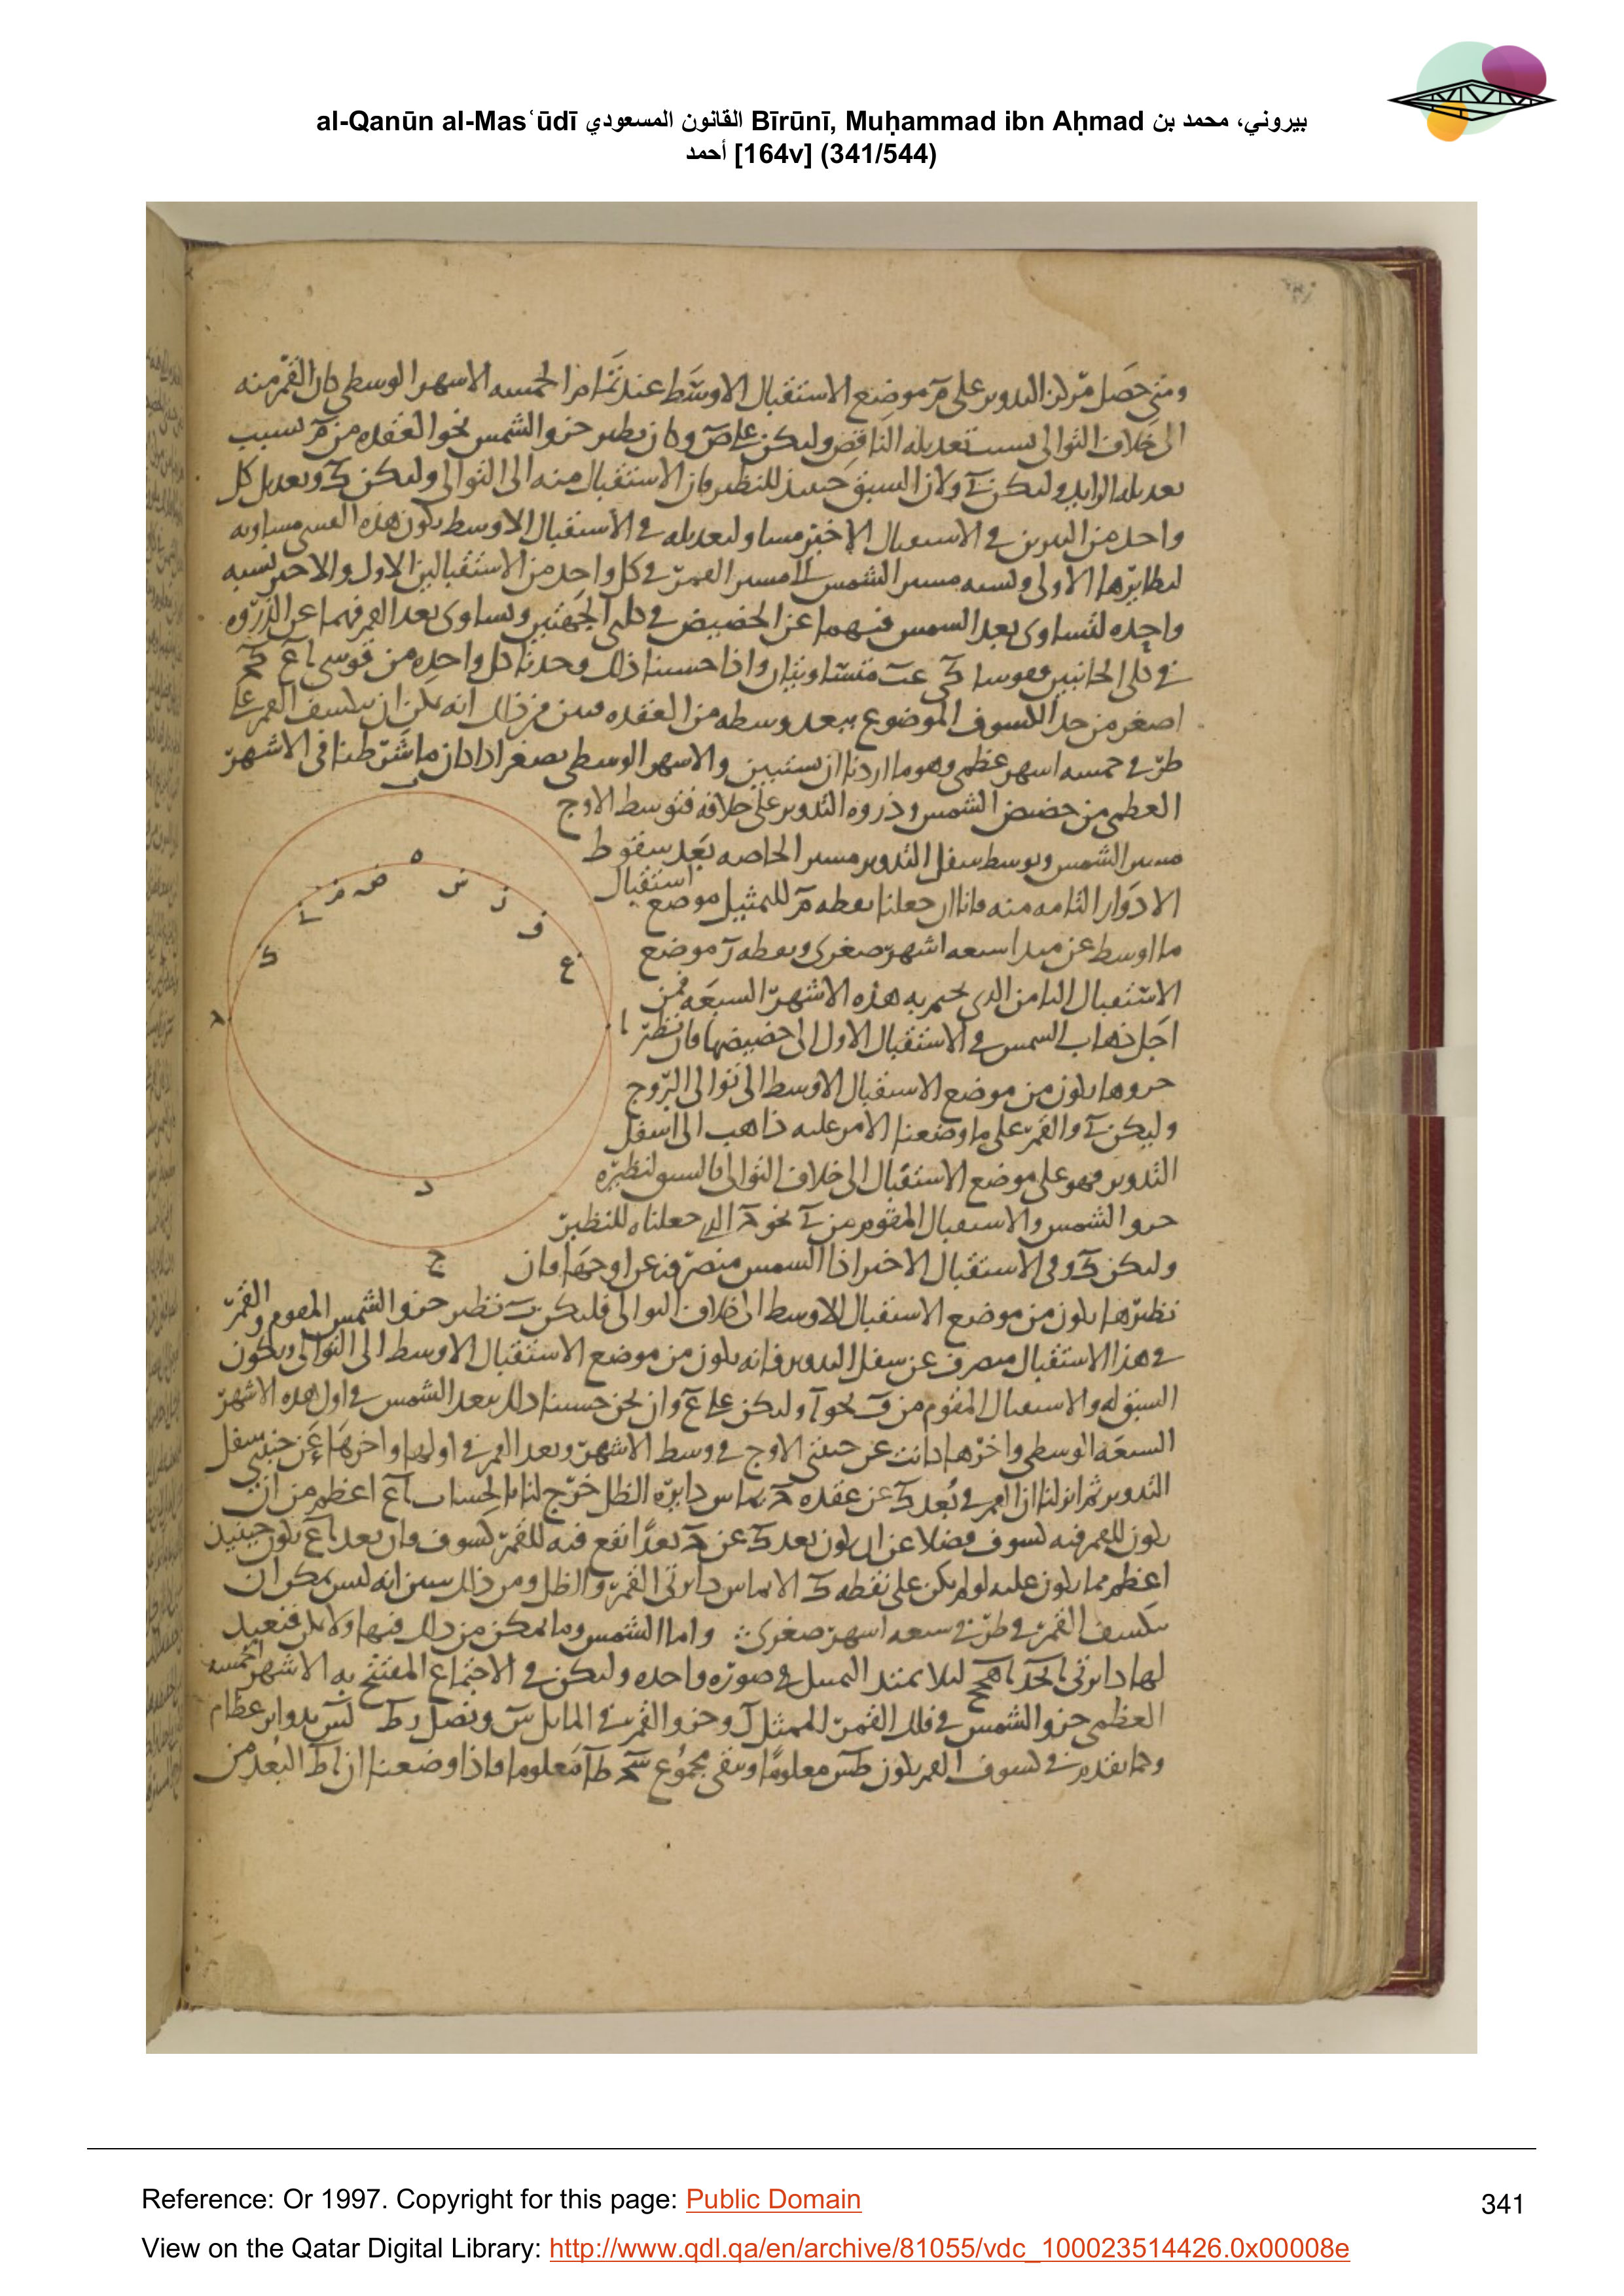 al-Qanūn al-Masʿūdī القانون المسعودي Bīrūnī, Muḥammad ibn Aḥmad بيروني، محمد بن
أحمد [164v] (341/544)
ومتى حصل مركز التدوير على م موضع الاستقبال الاوسط عند تمام الخمسه الاشهر الوسطى كان القمر منه
الى خلاف التوالى بسبب تعديله الناقص وليكن على ص وكان نظير جزو الشمس نحو العقده من م بسبب
تعديله الزايد وليكن ل ولان السبق حينئذ للنظير فان الاستقبال منه الى التوالى وليكن ك وتعديل كل
واحد من النيرين فى الاستقبال الاخير مساو لتعديله فى الاستقبال الاوسط تكون هذه القسى مساويه
لنظايرها الاولى ونسبه مسير الشمس الى مسير القمر فى كل واحد من الاستقبالين الاول والاخير نسبه
واحده لتساوى بعد الشمس فيهما عن الحضيض فى كلى الجهتين وتساوى بعد القمر فيهما عن الذروه
فى كلى الجانبين فقوسا متساويتان واذا حسبنا ذلك وجدنا كل واحده من قوسى اع كح
اصغر من حد الكسوف الموضوع ببعد وسطه من العقده فبين من ذلك انه يمكن ان ينكسف القمر على
طرفى خمسه اشهر عظمى وهو ما اردنا ان نستبين والاشهر الوسطى تصغر اذا كان ما شرطنا فى الاشهر
العظمى من حضيض الشمس وذروه التدوير على خلافه فتوسط الاوج
مسير الشمس وتوسط سفل التدوير مسير الخاصه بعد سقوط
الادوار التامه منه فانا ان جعلنا نقطه م للتمثيل موضع استقبال
ما اوسط عن مبدا سبعه اشهر صغرى ونقطه ر موضع
الاستقبال الثامن الذى يختم به هذه الاشهر السبعه فمن
اجل ذهاب الشمس فى الاستقبال الاول الى حضيضها فان نظير
جزوها يكون من موضع الاستقبال الاوسط الى توالى البروج
وليكن ل والقمر على ما وضعنا الامر عليه ذاهب الى اسفل
التدوير فهو على موضع الاستقبال الى خلاف التوالى فالسبق لنظيره
جزو الشمس والاستقبال المقوم من ل نحو ح الذى جعلناه للنظير
وليكن ك وفى الاستقبال الاخير اذا الشمس منصرفه عن اوجها فان
نظيرها يكون من موضع الاستقبال الاوسط الى خلاف التوالى فليكن ف نظير جزو الشمس المقوم والقمر
فى هذا الاستقبال منصرف عن سفل التدوير فانه يكون من موضع الاستقبال الاوسط الى التوالى ويكون
السبق له والاستقبال المقوم من ف نحو ا وليكن على ع وان نحن حسبنا ذلك ببعد الشمس فى اول هذه الاشهر
السبعه الوسطى واخرها كانت عن جنبتى الاوج فى وسط الاشهر وبعد القمر فى اولها واخرها عن جنبتى سفل
التدوير ثم انزلنا ان القمر فى بعد ك عن عقده ح يماس دايره الظل خرج لنا بالحساب اع اعظم من ان
يكون للقمر فيه كسوف فضلا عن ان يكون بعد ك عن ح بعدا يقع فيه للقمر كسوف فان بعد اع يكون حينيذ
اعظم مما يكون عليه لو لم يكن على نقطه ك الا تماس دايرتى القمر والظل ومن ذلك يتبين انه ليس يمكن ان
ينكسف القمر فى طرفى سبعه اشهر صغرى واما الشمس وما يمكن من ذلك فيها ولا يمكن فنعيد
لها دايرتى ليلا يمتد التمثيل فى صوره واحده وليكن فى الاجتماع المفتتح به الاشهر الخمسه
العظمى جزو الشمس فى فلك القمر الممثل ل وجزو القمر فى المايل س ونصل بدواير عظام
وكما تقدم فى كسوف القمر يكون معلوما ويبقى مجموع معلوما فاذا وضعنا ان اط البعد من
ب
ه
ص
م
ل
ك
س
ز
ف
ع
ا
ح
د
ج
Reference: Or 1997. Copyright for this page: Public Domain
341
View on the Qatar Digital Library: http://www.qdl.qa/en/archive/81055/vdc_100023514426.0x00008e